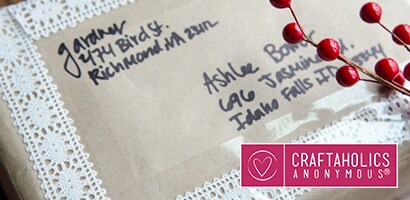 gardner
2474 Bird St.
Richmond, VA
Ashlee
696 Jasmine
Idaho Falls ID
CRAFTAHOLICS
ANONYMOUS®